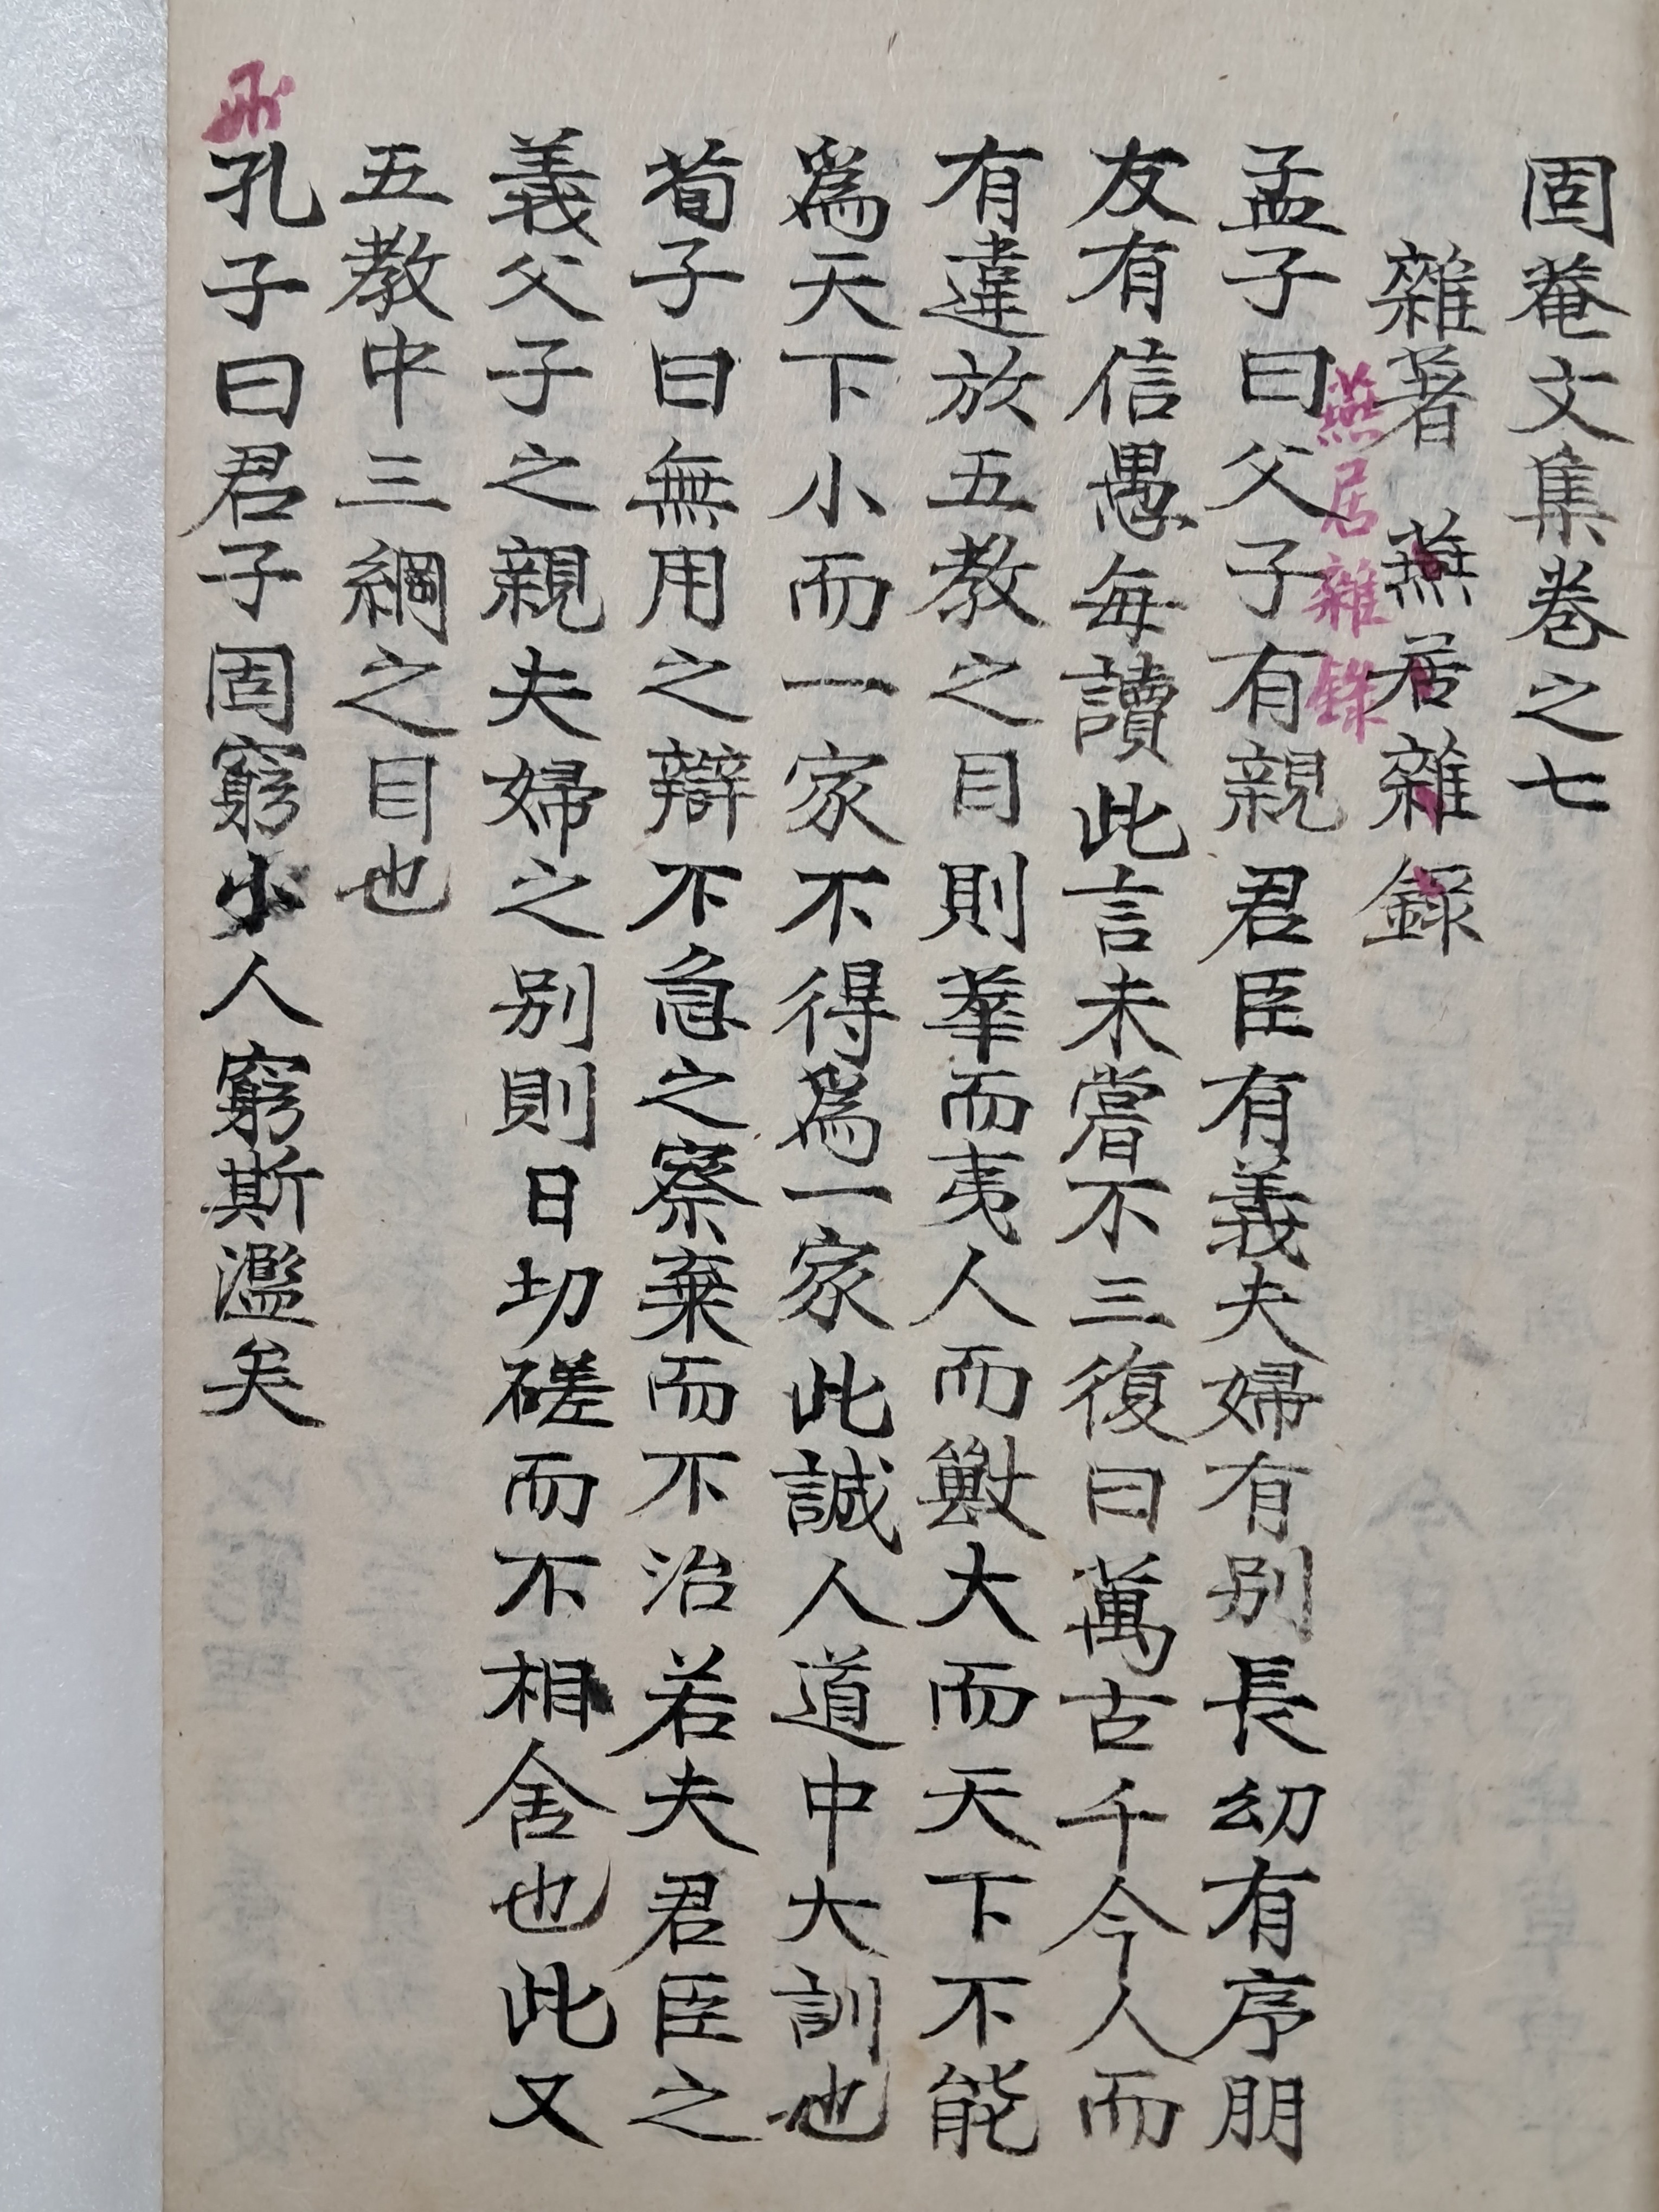 固菴文集卷之七
雜著　燕居雜錄
燕居雜錄
孟子曰父子有親君臣有義夫婦有别長幼有序朋
友有信愚每讀此言未嘗不三復曰萬古千今人而
有違放五教之目則華而夷人而獸大而天下不能
爲天下小而一家不得爲一家此誠人道中大訓也
荀子曰無用之辯不急之察棄而不治若夫君臣之
義父子之親夫婦之别則日切磋而不相舍也此又
五教中三綱之目也
孔子曰君子固窮小人窮斯濫矣